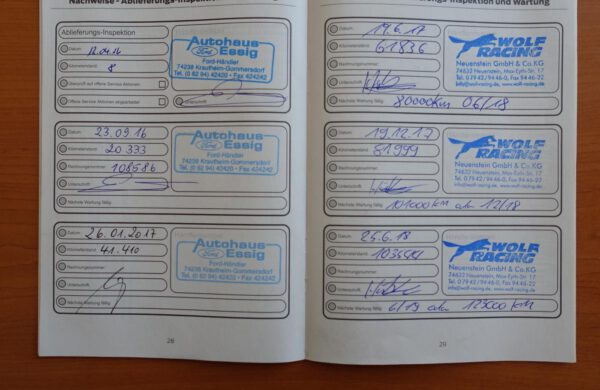 Nachweise - Ablieferungs-Inspektion
Ablieferungs-Inspektion
Datum
Kilometerstand 8
Überprüft auf offene Service Aktionen:
Offene Service Aktionen abgearbeitet:
Unterschrift
Autohaus
Ford Essig
Ford-Händler
74238 Krautheim-Gommersdorf
Tel. (0 62 94) 42420 - Fax 424242
Datum 23.09.16
Kilometerstand 20 333
Rechnungsnummer 108586
Unterschrift
Nächste Wartung fällig
Autohaus
Ford Essig
Ford-Händler
74238 Krautheim-Gommersdorf
Tel. (0 62 94) 42420 - Fax 424242
Datum 26.01.2017
Kilometerstand 41.410
Rechnungsnummer
Unterschrift
Nächste Wartung fällig
Autohaus
Ford Essig
Ford-Händler
74238 Krautheim-Gommersdorf
Tel. (0 62 94) 42420 - Fax 424242
28
Inspektion und Wartung
Datum 19.6.17
Kilometerstand 61836
Rechnungsnummer
Unterschrift
Nächste Wartung fällig 80000km 06/18
WOLF
RACING
Neuenstein GmbH & Co.KG
74632 Neuenstein, Max-Eyth-Str. 17
Tel. 0 79 42 / 94 46-0, Fax 94 46-22
info@wolf-racing.de, www.wolf-racing.de
Datum 19.12.17
Kilometerstand 81999
Rechnungsnummer
Unterschrift
Nächste Wartung fällig 101000km 12/18
WOLF
RACING
Neuenstein GmbH & Co.KG
74632 Neuenstein, Max-Eyth-Str. 17
Tel. 0 79 42 / 94 46-0, Fax 94 46-22
info@wolf-racing.de, www.wolf-racing.de
Datum 25.6.18
Kilometerstand
Rechnungsnummer
Unterschrift
Nächste Wartung fällig 6/19 123000 km
WOLF
RACING
Neuenstein GmbH & Co.KG
74632 Neuenstein, Max-Eyth-Str. 17
Tel. 0 79 42 / 94 46-0, Fax 94 46-22
info@wolf-racing.de, www.wolf-racing.de
29